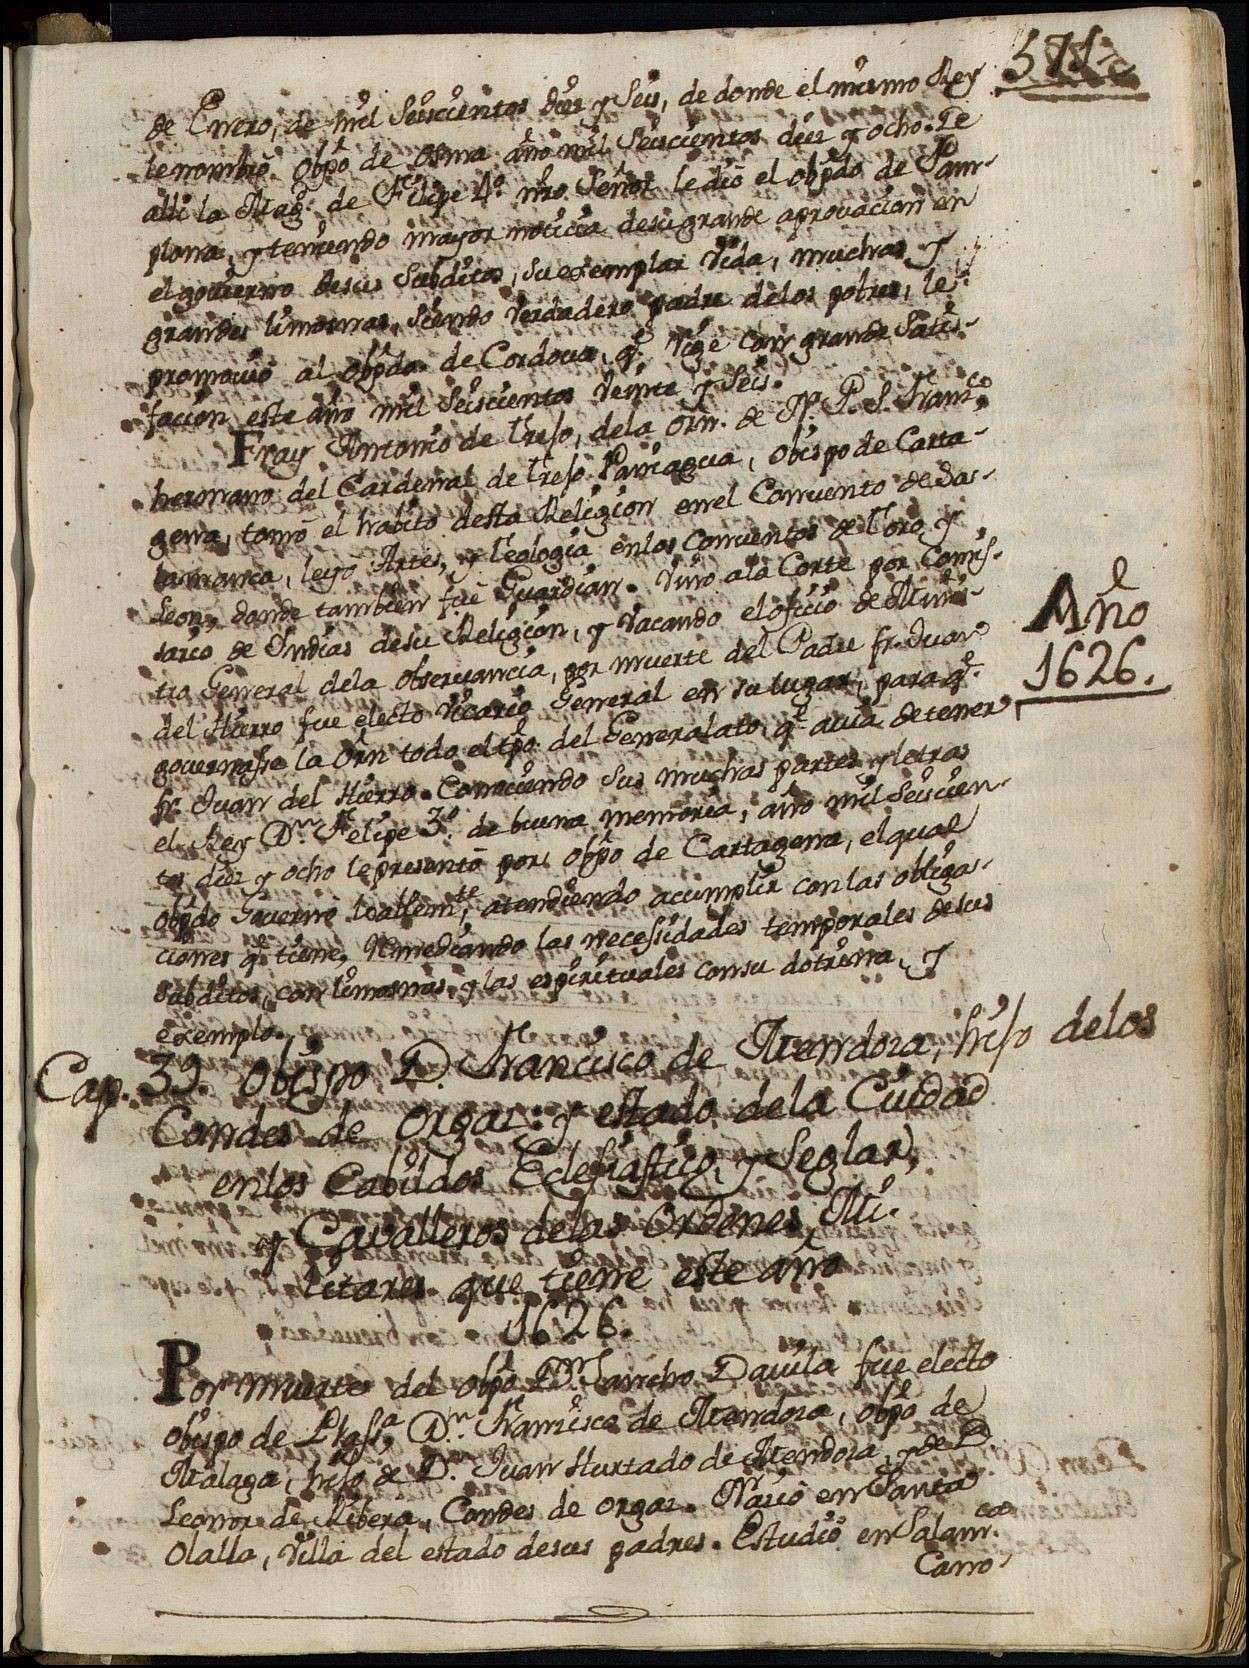 571
de Enero, de mil Seiscientos diez y Seis, de donde el mismo Rey
le nombró Obpō de Osma año mil Seiscientos diez y ocho. De
alli la Magᵈ. de Felipe 4º. nrō Señor le dió el obpdō de Pam-
plona, y teniendo mayor noticia desu grande aprovacion en
el govierno desus Subditos, su exemplar Vida, muchas y
grandes limosnas, siendo Verdadero padre delos pobres, le
promovió al obpdō. de Cordova, q̄ rige con grande Satis-
facion este año mil Seiscientos Veinte y Seis.
Fray Antonio de Trejo, dela Orn̄. de N. P. S. Franᶜᵒ,
hermano del Cardenal de Trejo Paniagua, Obispo de Carta-
gena, tomó el habito desta Religion en el Convento de Sa-
lamanca, leyó Artes, y Teologia enlos Conventos de Toro, y
Leon, donde tambien fue Guardian. Vino ala Corte por Comis-
sario de Indias desu Religion, y Vacando el oficio de Minis-
tro General dela Observancia, por muerte del Padre fr. Juan
del Hierro fue electo Vicario General en su lugar, para q̄.
governasse la Orn̄ todo el tpō. del Generalato, q̄ avia de tener
fr. Juan del Hierro. Conociendo sus muchas partes y letras
el Rey Dⁿ. Felipe 3º. de buena memoria, año mil Seiscien-
tos diez y ocho le presentó por obpō de Cartagena, el qual
obpdō Governó loablemᵗᵉ, atendiendo acumplir con las obliga-
ciones q̄ tiene, remediando las necessidades temporales desus
Subditos, con limosnas, y las espirituales con su dotrina, y
exemplo.
Año
1626.
Cap. 39. Obispo D. Francisco de Mendoza, hijo delos
Condes de Orgaz: y estado dela Ciudad
enlos Cabildos Eclesiastico, y Seglar,
y Cavalleros delas Ordenes Mi-
litares que tiene este año
1626.
Por muerte del obpō Dⁿ. Sancho Davila fue electo
obispo de Plasᵃ. Dⁿ. Francisco de Mendoza, obpō de
Malaga, hijo de Dⁿ. Juan Hurtado de Mendoza, y de D.
Leonor de Ribera, Condes de Orgaz. Nació en Santa
Olalla, Villa del estado desus padres. Estudió en Salamᶜᵃ.
Cano